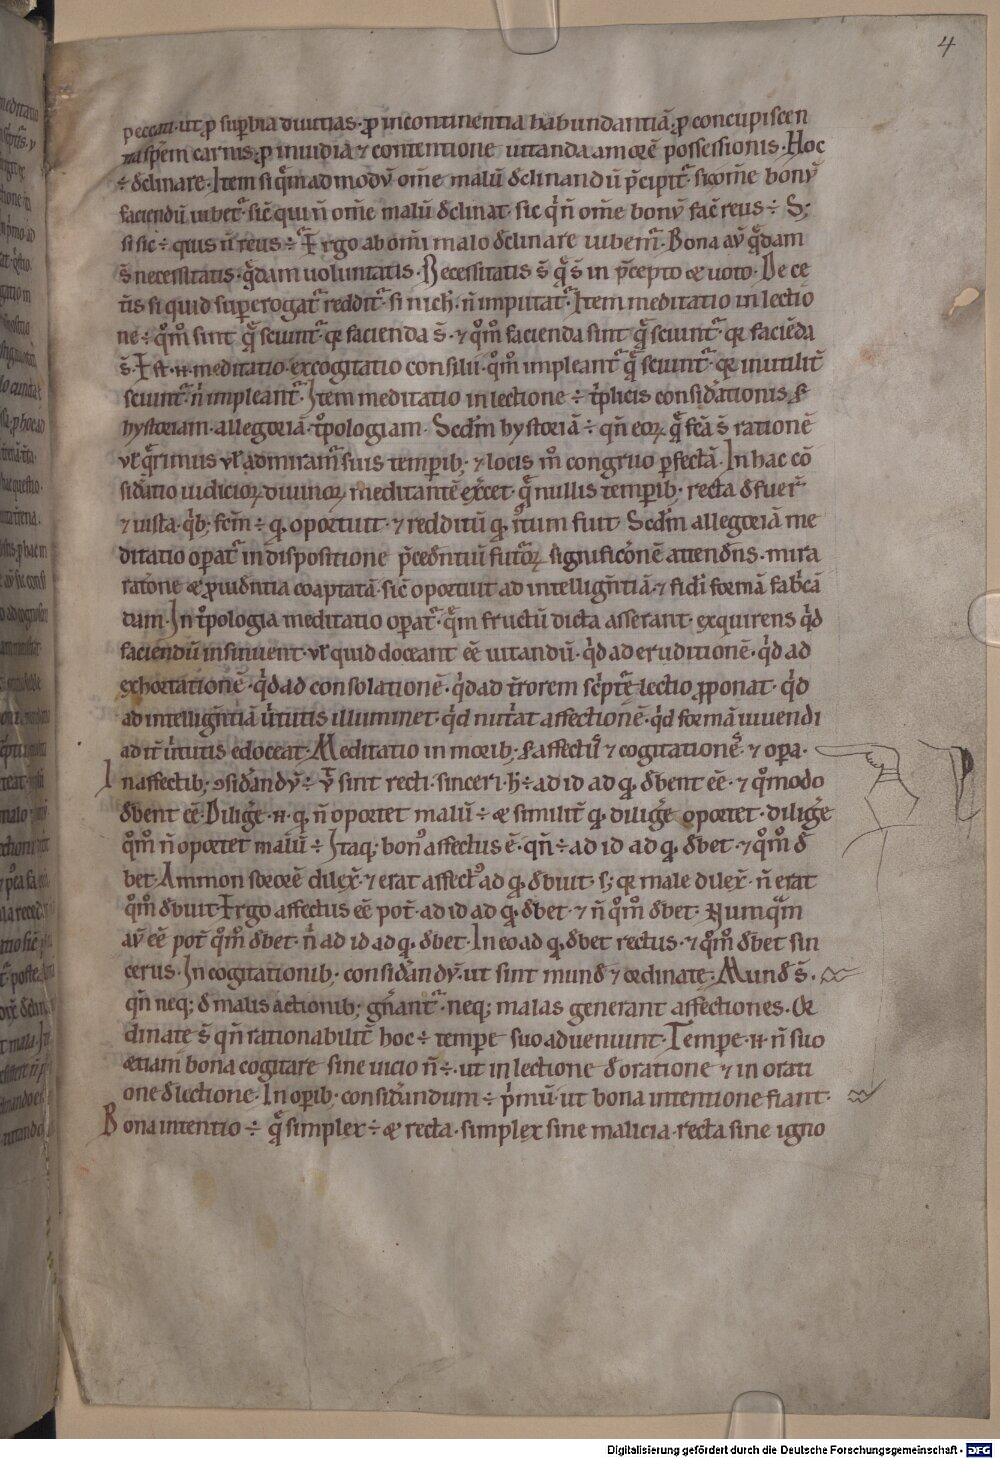 4
peccati· ut ꝓ suꝑbia diuitias· ꝓ incontinentia habundantiā· ꝓ concupiscen
tia spem carnis· ꝓ inuidia ⁊ contentione uitanda amorē possessionis· Hoc
÷ dclinare· Item si q̄madmodū om̄e malū dclinandū p̄cipit᷒ sic om̄e bonū
faciendū iubet᷒ sic̄ qui n̄ om̄e malū dclinat· sic q̇ n̄ om̄e bonū fac̄ reus ÷ S;
si sic ÷ quis n̄ reus ÷ Ergo ab om̄i malo dclinare iubem᷒· Bona aū q̄dam
s̄ necessitatis· q̄dam uoluntatis· Necessitatis s̄ q̄ s̄ in p̄cepto ⁊ uoto· De ce
t̄is si quid suꝑerogat᷒ reddit᷒ si nich̄ n̄ imputat᷒· Item meditatio in lectio
ne ÷ q̊m̊ sint q̄ sciunt᷒ qꝛ facienda s̄· ⁊ q̊m̊ facienda sint q̄ sciunt᷒ qꝛ faciēda
s̄· Est n̄ meditatio excogitatio consilii· q̊m̊ impleant᷒ q̄ sciunt᷒· qꝛ inutilit̄
sciunt᷒ n̄ impleant᷒· Item meditatio in lectione ÷ t̓plicis consid̓ationis· s̄
hystoriam· allegoriā· t̊pologiam· Scd̄m hystoriā ÷ qn̄ eoꝝ q̄ fc̄a s̄ rationē
ul̄ q̄rimus ul̄ admiram᷒ suis temꝑib; ⁊ locis m̊ congruo ꝑfectā· In hac cō
sid̓atio iudicioꝝ diuinoꝝ meditantē ex̓cet· q̄ nullis temꝑib; recta dfuer̄
⁊ iusta· q̓b; fcm̄ ÷ qđ oportuit· ⁊ redditū qđ iustum fuit· Scd̄m allegoriā me
ditatio oꝑat᷒ in dispositione p̄cedentiū futuroꝝ significōnē attendēns· mira
ratōne ⁊ ꝓuidentia coaptatā· sic̄ oportuit ad intelligentiā· ⁊ fidi formā fab̓cā
dam· In t̊pologia meditatio oꝑat᷒· q̄m fructū dicta afferant· exquirens q̓d
faciendū insinuent· ul̄ quid doceant ēē uitandū· q̓d ad eruditionē· q̓d ad
exhortationē· q̓d ad consolationē· q̓d ad t̄rorem sc̓pt̄e lectio ꝓponat· q̓d
ad intelligentiā ūtutis illuminet· q̓d nut̓at affectionē· q̓d formā uiuendi
ad it̄ ūtutis edoceat· Meditatio in morib; s̄ affectū ⁊ cogitationē ⁊ oꝑa·
In affectib; ꝯsid̓andū ÷ ut̄ sint recti· sinceri· h̄ ÷ ad id ad qđ dbent ēē· ⁊ q̊modo
dbent ēē· Dilige᷒ n̄ qđ n̄ oportet malū ÷ ⁊ similit̄ qđ dilige᷒ oportet· dilige᷒
q̊m̊ n̄ oportet malū ÷ Itaq; bon᷒ affectus ē· qn̄ ÷ ad id ad qđ dbet· ⁊ q̊m̊ d
bet· Ammon sororē dilex̄· ⁊ erat affect᷒ ad qđ dbuit· s; qꝛ male dilex̄ n̄ erat
q̊m̊ dbuit· Ergo affectus ēē pot̄· ad id ad qđ dbet· ⁊ n̄ q̊m̊ dbet· Numq̄m
aū ēē pot̄ q̊m̊ dbet· n̓ ad id ad qđ dbet· In eo ad qđ dbet rectus· ⁊ q̊m̊ dbet sin
cerus· In cogitationib; consid̓andū· ut sint mund ⁊ ordinate· Mund s̄·
qn̄ neq; d malis actionib; gn̄ant᷒· neq; malas generant affectiones· Or
dinate s̄ qn̄ rationabilit̄ hoc ÷ tempe suo adueniunt· Tempe n̄ n̄ suo
etiam bona cogitare sine uicio n̄ ÷· ut in lectione d oratione ⁊ in orati
one d lectione· In oꝑib; consid̓andum ÷ p̓mū· ut bona intentione fiant·
Bona intentio ÷ q̄ simplex ÷ ⁊ recta· simplex sine malicia· recta sine igno
Digitalisierung gefördert durch die Deutsche Forschungsgemeinschaft - DFG